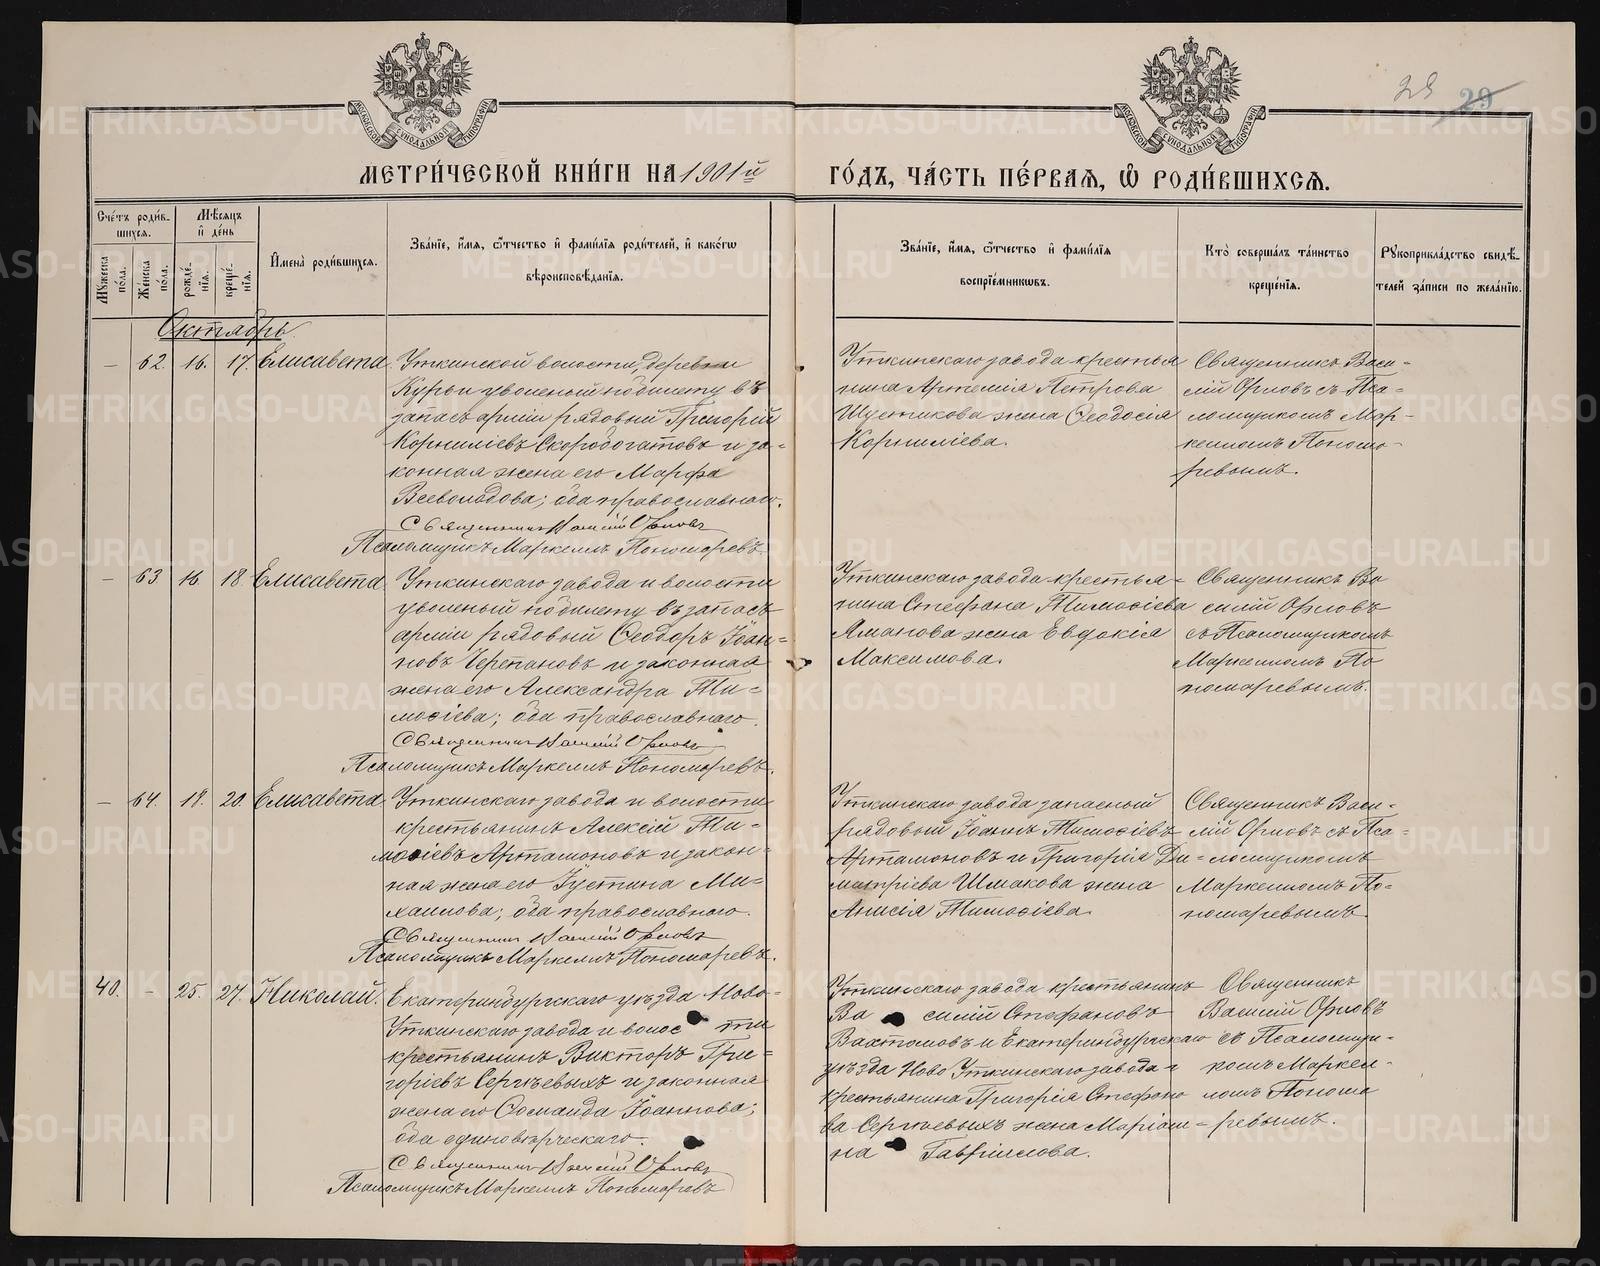 29 29
МОСКОВСКОЙ СѴНОДАЛЬНОЙ ТИПОГРАФІИ
МОСКОВСКОЙ СѴНОДАЛЬНОЙ ТИПОГРАФІИ
МЕТРИ́ЧЕСКОЙ КНИ́ГИ НА 1901й ГО́ДЪ, ЧА́СТЬ ПЕ́РВАѦ, Ѡ҆ РОДИ́ВШИХСѦ.
Сче́тъ роди́в-
шихсѧ.
Мѣ́сѧцъ
и҆ де́нь
Мꙋ́жеска по́ла.
Же́нска по́ла.
рожде́-
нїѧ.
креще́-
нїѧ.
И҆мена̀ роди́вшихсѧ.
Зва́нїе, и҆́мѧ, ѻ҆́тчество и҆ фами́лїѧ роди́телей, и҆ како́гѡ
вѣроисповѣ́данїѧ.
Зва́нїе, и҆́мѧ, ѻ҆́тчество и҆ фами́лїѧ
воспрїе́мникѡвъ.
Кто̀ соверша́лъ та́инство
креще́нїѧ.
Рꙋкоприкла́дство свидѣ́-
телей за́писи по жела́нїю.
Октябрь
— 62. 16. 17. Елисавета.
Уткинской волости, деревни
Курьи уволеный по билету въ
запасъ арміи рядовый Григорій
Корниліевъ Скоробогатовъ и за-
конная жена его Марфа
Всеволодова; оба православнаго.
Священникъ Василій Орловъ
Псаломщикъ Маркеллъ Пономаревъ.
Уткинскаго завода крестья
нина Артемія Петрова
Шустикова жена Феодосія
Корниліева.
Священникъ Васи-
лій Орловъ съ Пса-
ломщикомъ Мар-
келломъ Понома-
ревымъ.
— 63 16. 18 Елисавета.
Уткинскаго завода и волости
уволеный по билету въ запасъ
арміи рядовый Феодоръ Іоан-
новъ Черепановъ и законная
жена его Александра Ти-
моѳіева; оба православнаго.
Священникъ Василій Орловъ
Псаломщикъ Маркеллъ Пономаревъ.
Уткинскаго завода крестья-
нина Стефана Тимоѳіева
Аманова жена Евдокія
Максимова.
Священникъ Ва
силій Орловъ
съ Псаломщикомъ
Маркелломъ По
номаревымъ.
— 64. 18. 20. Елисавета.
Уткинскаго завода и волости
крестьянинъ Алексій Ти-
моѳіевъ Артамоновъ и закон-
ная жена его Іустина Ми-
хаилова; оба православнаго.
Священникъ Василій Орловъ
Псаломщикъ Маркеллъ Пономаревъ.
Уткинскаго завода запасный
рядовый Іоаннъ Тимоѳіевъ
Артамоновъ и Григорія Ди-
митріева Шмакова жена
Анисія Тимоѳіева.
Священникъ Васи-
лій Орловъ съ Пса-
ломщикомъ
Маркелломъ По-
номаревымъ.
40. — 25. 27. Николай.
Екатеринбургскаго уѣзда Ново-
Уткинскаго завода и волости
крестьянинъ Викторъ Гри-
горіевъ Сергѣевыхъ и законная
жена его Соманида Іоаннова;
оба единовѣрческаго.
Священникъ Василій Орловъ
Псаломщикъ Маркеллъ Пономаревъ
Уткинскаго завода крестьянинъ
Василій Стефановъ
Вахтомовъ и Екатеринбургскаго
уѣзда Ново Уткинскаго завода
крестьянина Григорія Стефано
ва Сергѣевыхъ жена Маріам-
на Гавріилова.
Священникъ
Василій Орловъ
съ Псаломщи-
комъ Маркел-
ломъ Понома
ревымъ.
METRIKI.GASO-URAL.RU